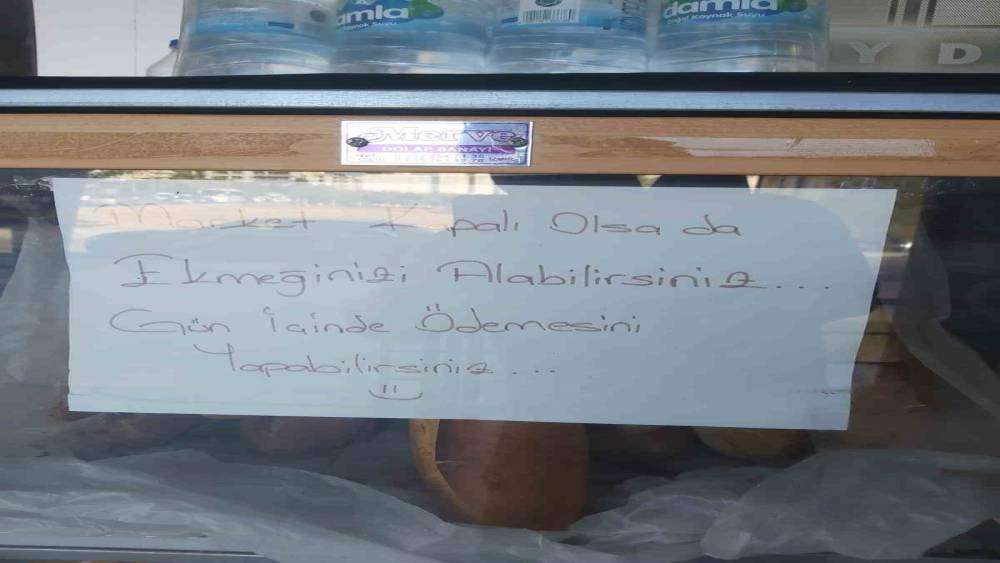 damla
damla
Doğal Kaynak Suyu
Y D
Merve
DOLAP SANAYİ
Market Kapalı Olsa da
Ekmeğinizi Alabilirsiniz...
Gün İçinde Ödemesini
Yapabilirsiniz...